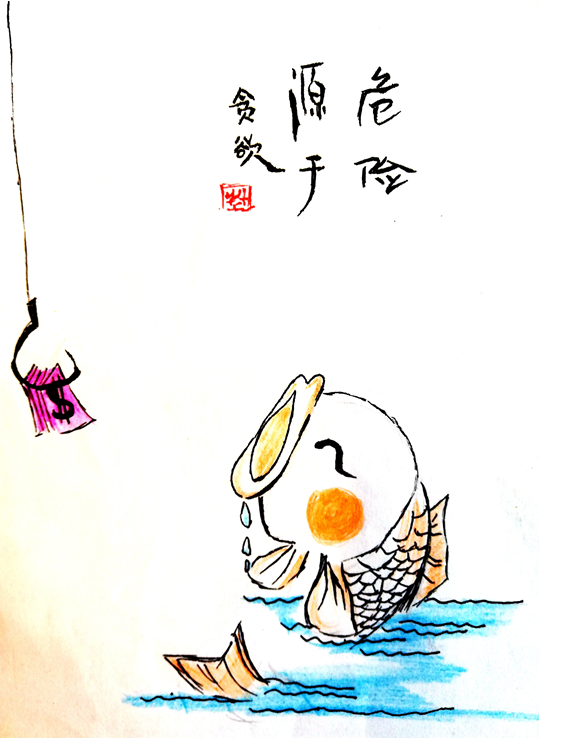 危险
源于
贪欲
$